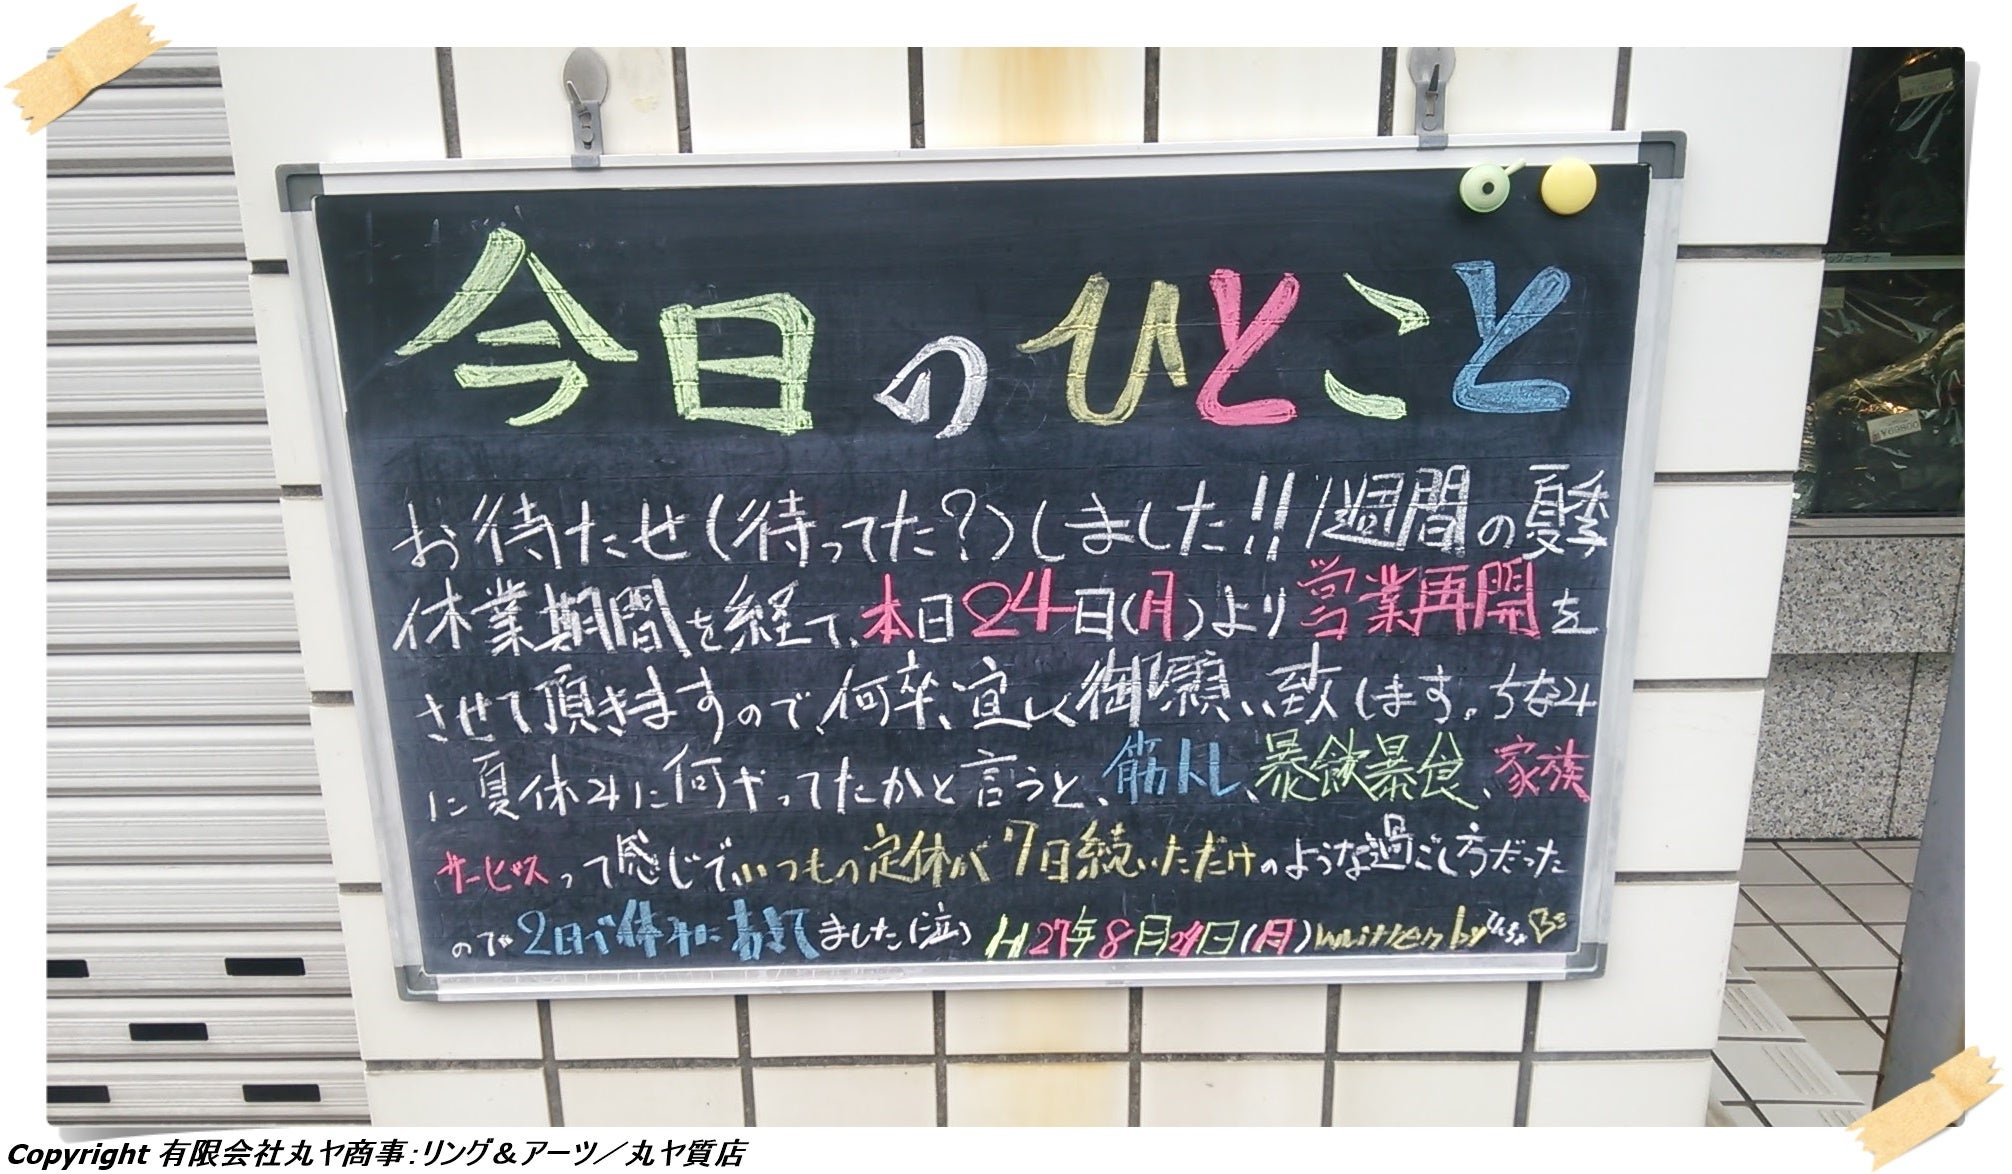 今日のひとこと
お待たせ(待ってた?)しました!!1週間の夏季
休業期間を経て、本日24日(月)より営業再開を
させて頂きますので、何卒、宜しく御願い致します。ちなみ
に夏休みに何やってたかと言うと、筋トレ、暴飲暴食、家族
サービスって感じで、いつもの定休が7日続いただけのような過ごし方だった
ので2日で休みにあきてました(泣) H27年8月24日(月) written by
Copyright 有限会社丸ヤ商事:リング&アーツ/丸ヤ質店